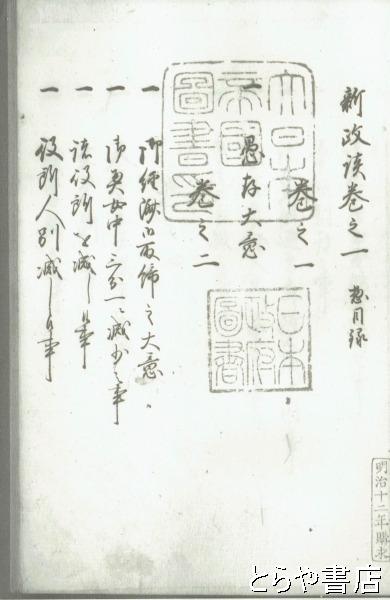 新政談巻之一　惣目録
巻之一
一　愚存大意
巻之二
一　御経済御取締之大意
一　御奥女中三分一ニ減少之事
一　諸役所を減し候事
一　役所人別減し候事
大日本帝國圖書印
日本政府圖書
明治十二年購求
とらや書店